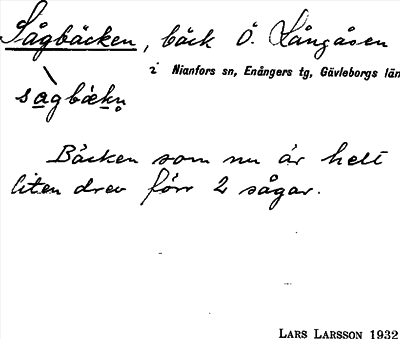 Sågbäcken, bäck Ö. Långåsen
i Nianfors sn, Enångers tg, Gävleborgs län
sagbækn̥
Bäcken som nu är helt
liten drev förr 2 sågar.
LARS LARSSON 1932